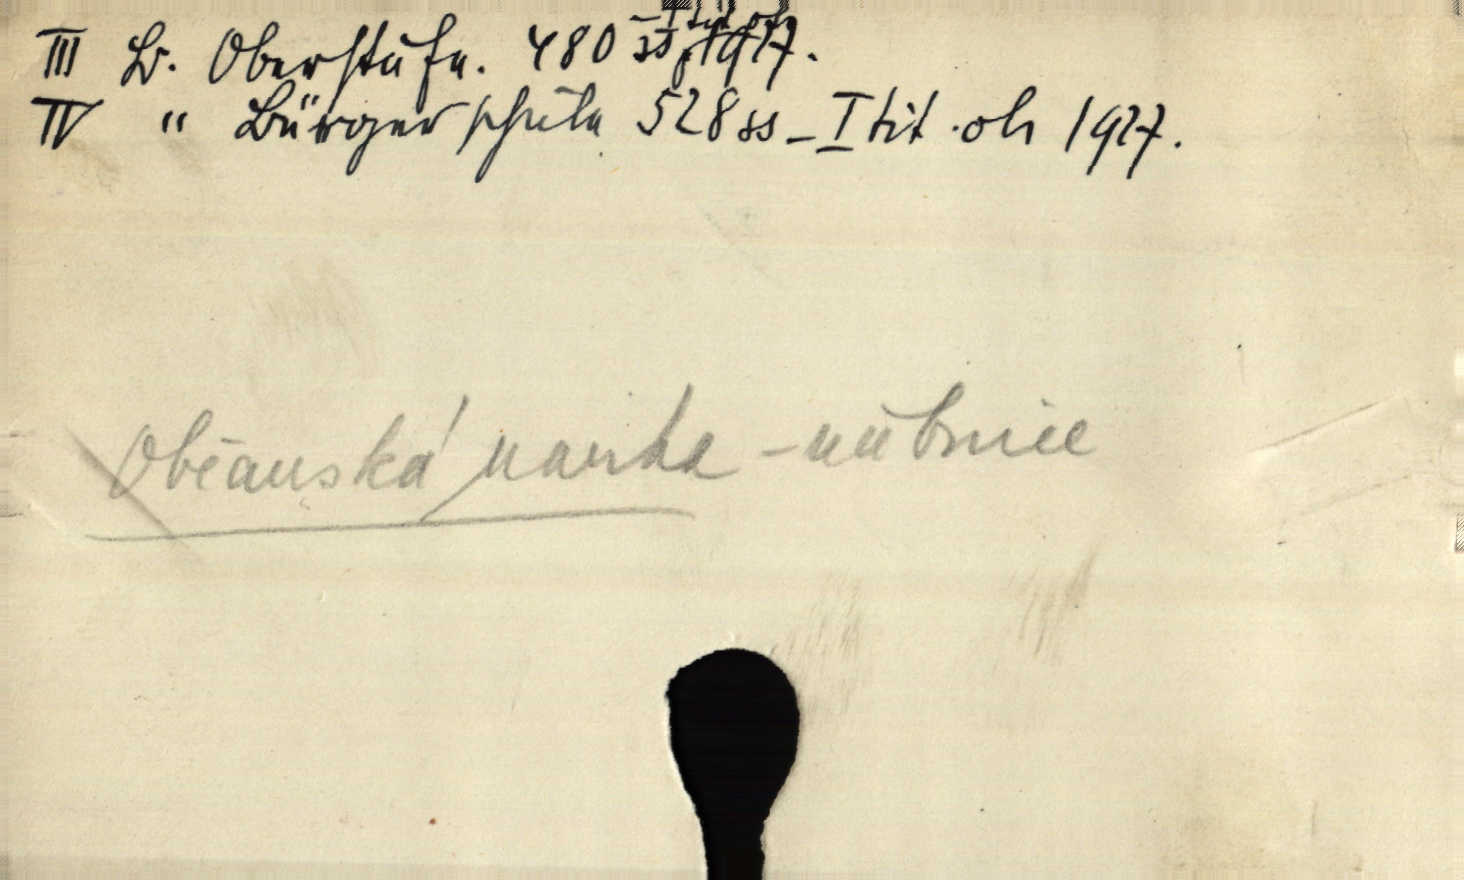 III B. Oberstufe. 480 ss, 1927.
IV " Bürgerschule 528 ss - I tit. ob 1927.
Občanská nauka - učebnice